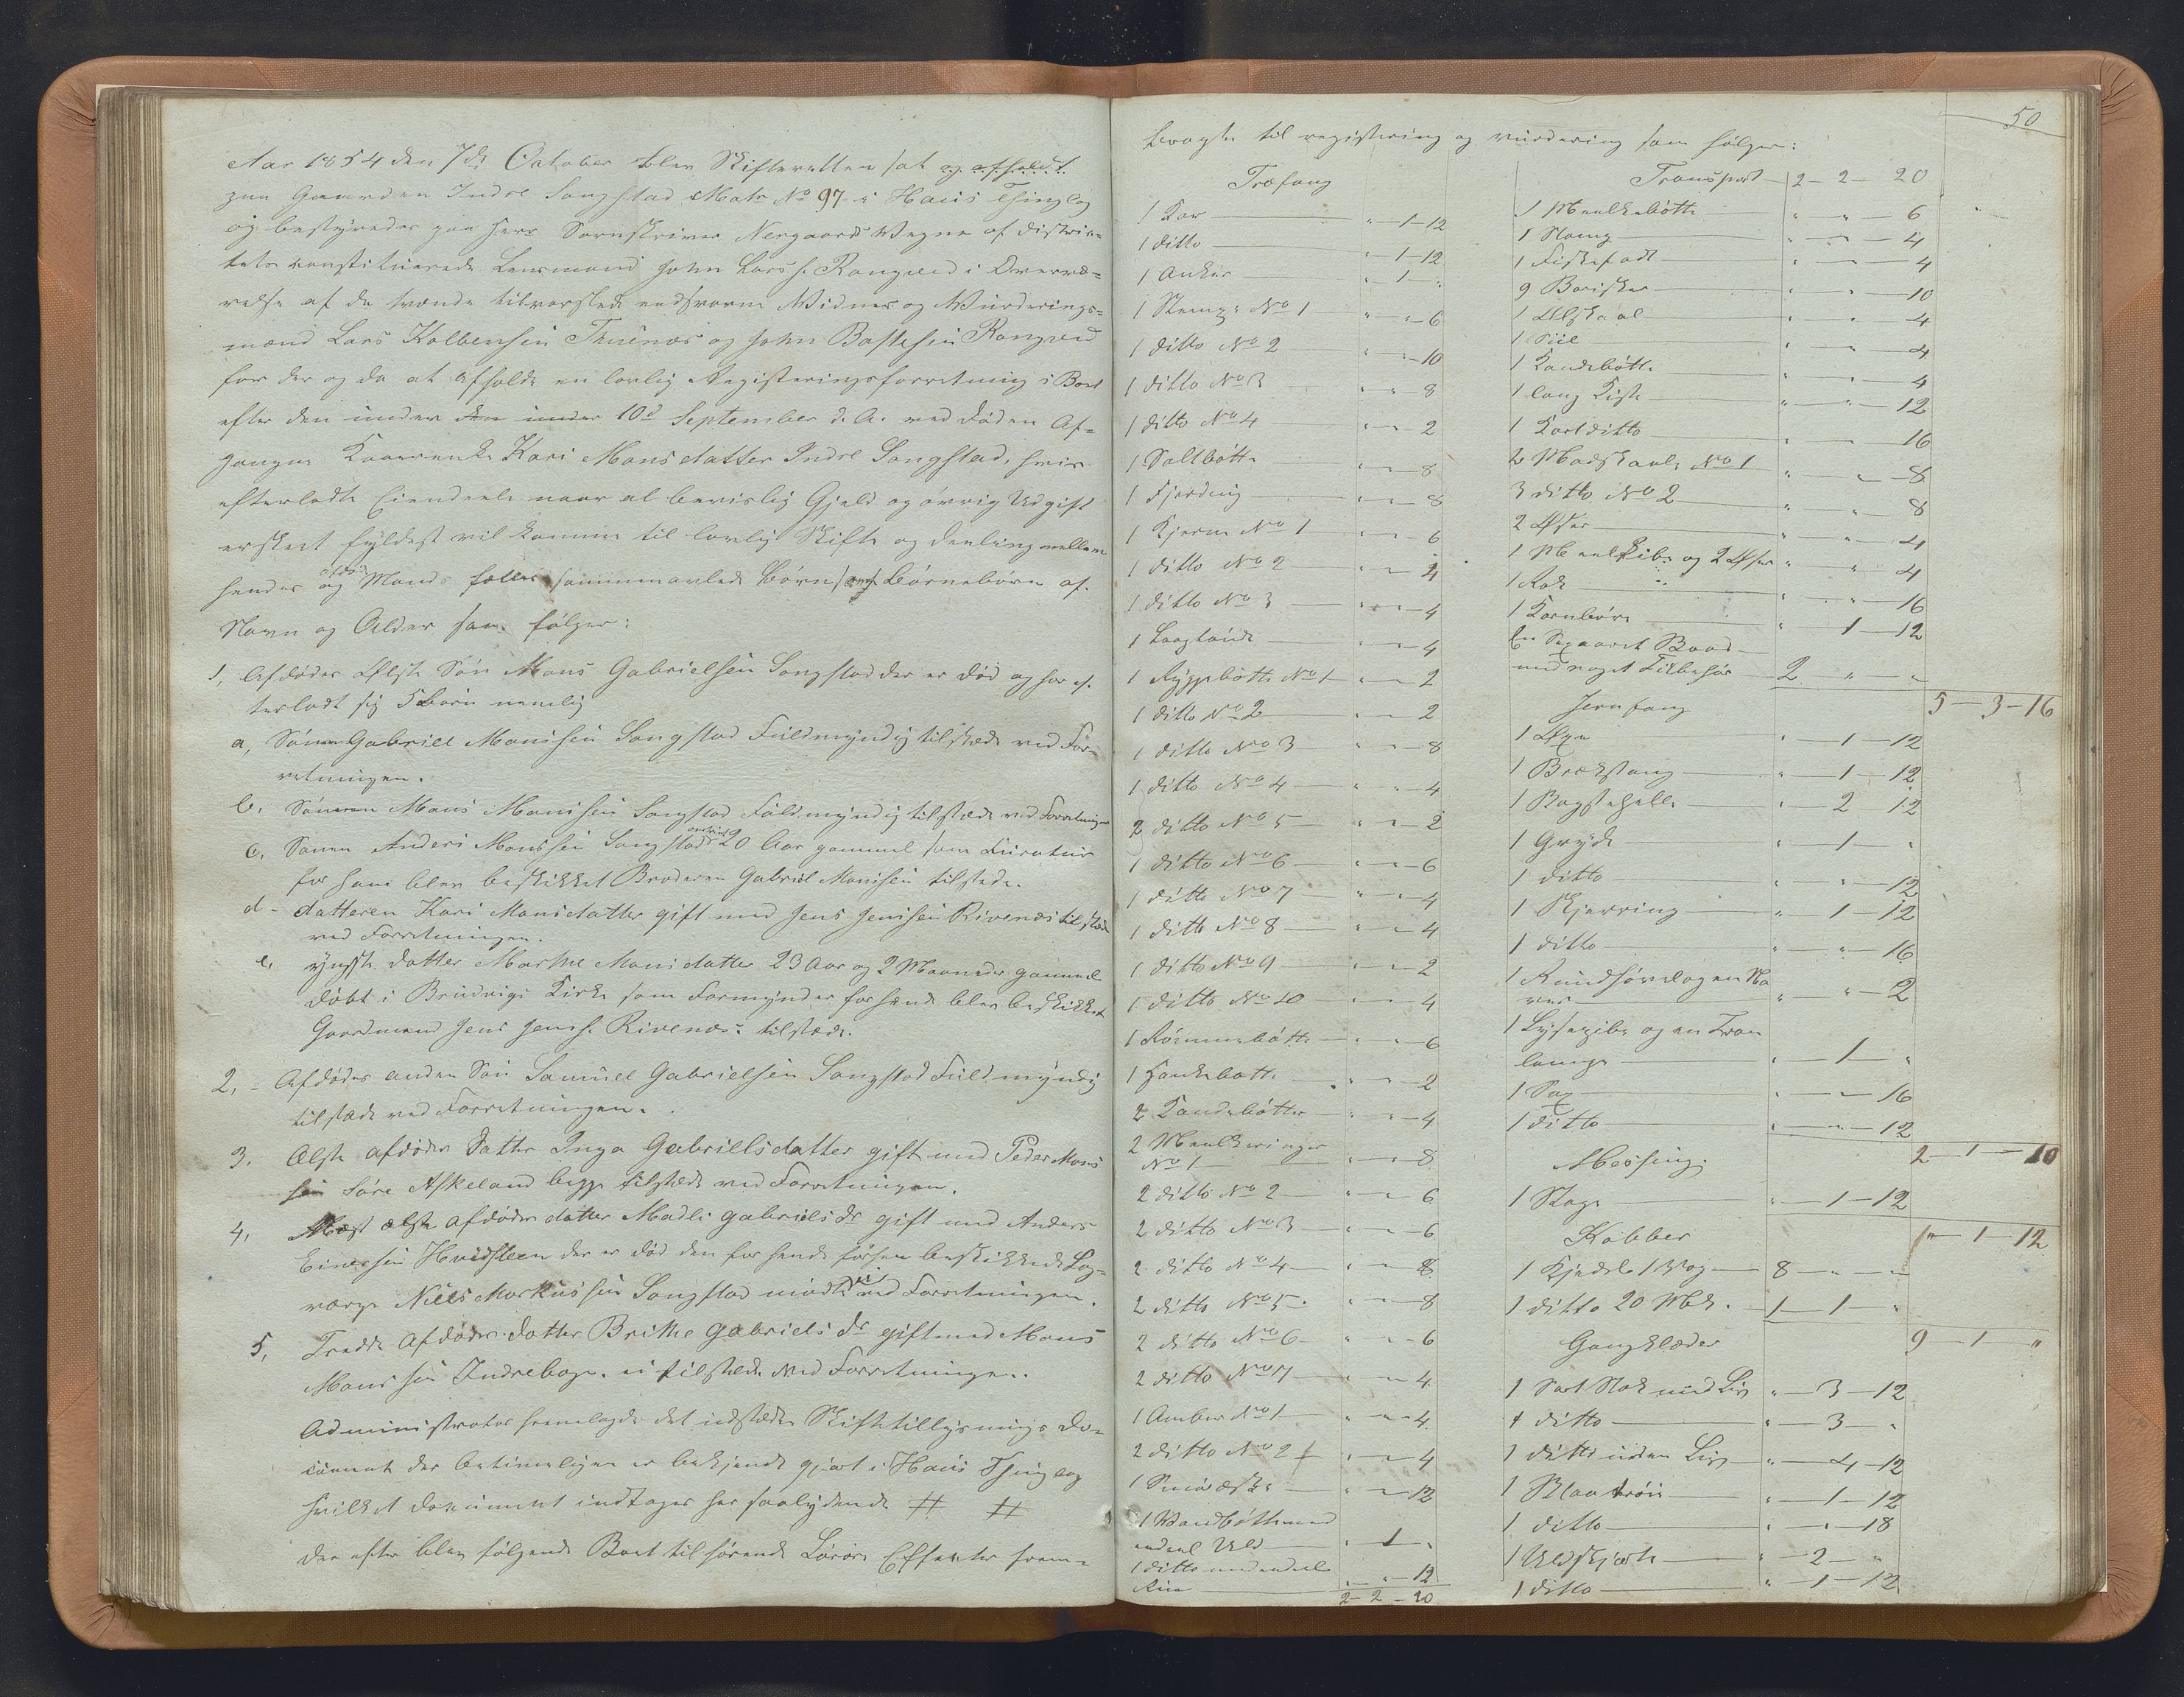 Aar 1854 den 7de October blev Skifteretten sat og afholdt
paa Gaarden Indre Songstad Matr No 97 i Haus Thinglag
og bestyredes paa Herr Sorenskriver Nergaards Vegne af Distric-
tets constituerede Lensmand John Larss. Rongved i Overvæ-
relse af de tvende tilvarslede eedsvorne Vidner og Vurderings-
mænd Lars Kolbensen Thunæs og John Baltesen Rongved
for der og da at afholde en lovlig Registeringsforretning i Boet
efter den under den under 10d September d. A. ved Døden Af-
gangne Kaarenke Kari Monsdatter Indre Songstad, hvis
efterladte Eiendeele naar al beviislig Gjeld og øvrig Udgift
er skeet fyldest vil komme til lovlig Skifte og Deeling mellem
hendes og afdøde Mands fælles sammenavlede Børn samt Børnebørn af
Navn og Alder som følger:
1, Afdødes Ælste Søn Mons Gabrielsen Songstad der er død og har ef-
terladt sig 5 Børn nemlig
a, Sønnen Gabriel Monsen Songstad Fuldmyndig tilstæde ved For-
retningen.
b. Sønnen Mons Monsen Songstad Fuldmyndig tilstæde ved Forretningen
c. Sønnen Anders Monssen Songstad 20 Aar gammel som Curator
for ham blev beskikket Broderen Gabriel Monsen tilstede.
d- datteren Kari Monsdatter gift med Jens Jensen Rivenæs tilstæde
ved Forretningen.
e, yngste datter Marthe Monsdatter 23 Aar og 2 Maaneder gammel
døbt i Brudvigs Kirke som Formynder for hende blev beskikket
Gaardmand Jens Jenss. Rivenæs. tilstæde.
2, - Afdødes anden Søn Samuel Gabrielsen Songstad Fuldmyndig
tilstæde ved Forretningen.
3. Ælste afdødes Datter Inga Gabrielsdatter gift med Peder Mons
sen Søre Askeland begge tilstæde ved Forretningen.
4, Næst ælste afdødes datter Madli Gabrielsdr gift med Anders
Einersen Hvidsteen der er død den for hende forhen beskikkede Lag-
værge Niels Markussen Songstad mødte ei ved Forretningen.
5, Tredde Afdødes datter Brithe Gabrielsdr gift med Mons
Monssen Indrebøge. ei tilstæde ved Forretningen.
Administrator fremlagde det udstædte Skiftetillysnings Do-
cument der betimeligen er bekjendt gjort i Haus Thinglag
hvilket Document indtages her saalydende # #
Der efter blev følgende Boet tilhørende Løsøre Effecter frem-
50
bragte til registering og vurdering som følger:
Træfang
1 Kar " - 1 - 12
1 ditto " - 1 - 12
1 Anker " - 1 - "
1 Stampe No 1 " - " - 6
1 ditto No 2 " - " - 10
1 ditto No 3 " - " - 8
1 ditto No 4 " - " - 2
1 Saltbøtte " - " - 8
1 Fjerding " - " - 8
1 Kjerne No 1 " - " - 6
1 ditto No 2 " - " - 4
1 ditto No 3 " - " - 4
1 Laagtønde " - " - 4
1 Ryggebøtte No 1 " - " - 2
1 ditto No 2 " - " - 2
1 ditto No 3 " - " - 8
1 ditto No 4 " - " - 4
2 ditto No 5 " - " - 2
1 ditto No 6 " - " - 6
1 ditto No 7 " - " - 4
1 ditto No 8 " - " - 4
1 ditto No 9 " - " - 2
1 ditto No 10 " - " - 4
1 Rømmebøtte " - " - 6
1 Hankebøtte " - " - 2
2 Kandebøtter " - " - 4
2 Meelkeringer
No 1 " - " - 8
2 ditto No 2 " - " - 6
2 ditto No 3 " - " - 6
2 ditto No 4 " - " - 8
2 ditto No 5 " - " - 8
2 ditto No 6 " - " - 6
2 ditto No 7 " - " - 4
1 Ambar No 1 " - " - 4
2 ditto No 2 " - " - 4
1 Smøræske " - " - 12
1 Vandbøtte med
endeel Uld " - 1 - "
1 ditto med endeel
" - " - 12
2 - 2 - 20
Transport 2 - 2 - 20
1 Meelkebøtte " - " - 6
1 " - " - 4
1 Fiskefadt " - " - 4
9 " - " - 10
1 Ølskaal " - " - 4
1 Siil " - " - 4
1 Kandebøtte " - " - 4
1 lang Kiste " - " - 12
1 Kort ditto " - " - 16
2 Madskaale No 1 " - " - 8
3 ditto No 2 " - " - 8
2 Øser " - " - 4
1 Meelkibe og 2 Øser " - " - 4
1 Rok " - " - 16
1 Kornbøre " - 1 - 12
En Sexaaret Baad
med noget Tilbehør 2 - " - "
5 - 3 - 16
Jernfang
1 Øxe " - 1 - 12
1 Brækstang " - 1 - 12
1 Bagstehelle " - 2 - 12
1 Gryde " - 1 - "
1 ditto " - " - 12
1 Skjerring " - 1 - 12
1 ditto " - " - 16
1 Rundhøvel og en Na
ver " - " - 2
1 Lysepibe og en Tran
lampe " - 1 - "
1 Sax " - " - 16
1 ditto " - " - 12
2 - 1 - 10
Messing.
1 Stage " - 1 - 12
" - 1 - 12
Kobber
1 Kjedel 1 Vog 8 - " - "
1 ditto 20 Mk. 1 - 1 - "
9 - 1 - "
Gangklæder
1 Sort Stak med Liv " - 3 - 12
1 ditto " - 3 - "
1 ditto uden Liv " - 4 - 12
1 Blaa trøie " - 1 - 12
1 ditto " - " - 18
1 Uldskjorte " - 2 - "
1 ditto " - 1 - 12